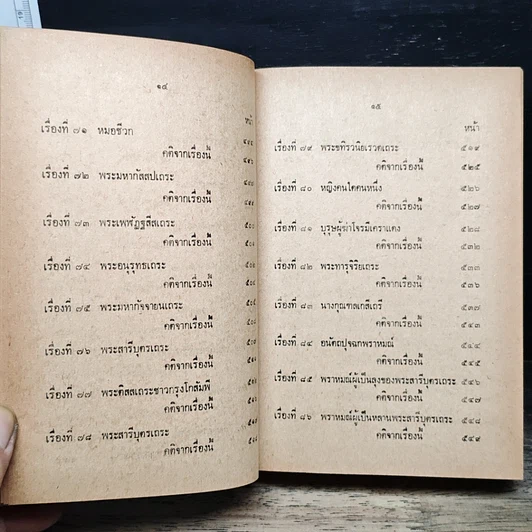 ๑๔
หน้า
เรื่องที่ ๗๑ หมอชีวก
คติจากเรื่องนี้
เรื่องที่ ๗๒ พระมหากัสสปเถระ
คติจากเรื่องนี้
เรื่องที่ ๗๓ พระเพฬัฏฐสีสเถระ
คติจากเรื่องนี้
เรื่องที่ ๗๔ พระอนุรุทธเถระ
คติจากเรื่องนี้
เรื่องที่ ๗๕ พระมหากัจจายนเถระ
คติจากเรื่องนี้
เรื่องที่ ๗๖ พระสารีบุตรเถระ
คติจากเรื่องนี้
เรื่องที่ ๗๗ พระติสสเถระชาวกรุงโกสัมพี
คติจากเรื่องนี้
เรื่องที่ ๗๘ พระสารีบุตรเถระ
คติจากเรื่องนี้
๑๕
หน้า
เรื่องที่ ๗๙ พระขทิรวนิยเรวตเถระ ๕๑๙
คติจากเรื่องนี้ ๕๒๕
เรื่องที่ ๘๐ หญิงคนใดคนหนึ่ง ๕๒๖
คติจากเรื่องนี้ ๕๒๗
เรื่องที่ ๘๑ บุรุษผู้ฆ่าโจรมีเคราแดง ๕๒๘
คติจากเรื่องนี้ ๕๓๒
เรื่องที่ ๘๒ พระทารุจิริยเถระ ๕๓๓
คติจากเรื่องนี้ ๕๓๖
เรื่องที่ ๘๓ นางกุณฑลเกสีเถรี ๕๓๗
คติจากเรื่องนี้ ๕๔๓
เรื่องที่ ๘๔ อนัตถปุจฉกพราหมณ์ ๕๔๔
คติจากเรื่องนี้ ๕๔๕
เรื่องที่ ๘๕ พราหมณ์ผู้เป็นลุงของพระสารีบุตรเถระ ๕๔๖
คติจากเรื่องนี้ ๕๔๗
เรื่องที่ ๘๖ พราหมณ์ผู้เป็นหลานพระสารีบุตรเถระ ๕๔๘
คติจากเรื่องนี้ ๕๔๙